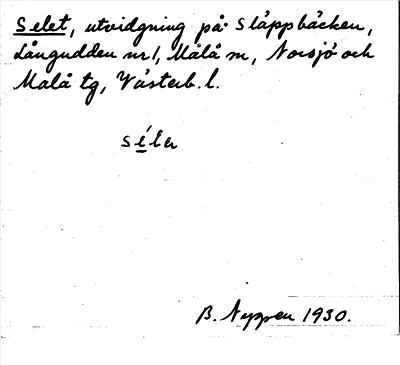 Selet, utvidgning på Släppbäcken,
Långudden nr 1, Malå sn, Norsjö och
Malå tg, Västerb. l.
séla
B. Nyppen 1930.